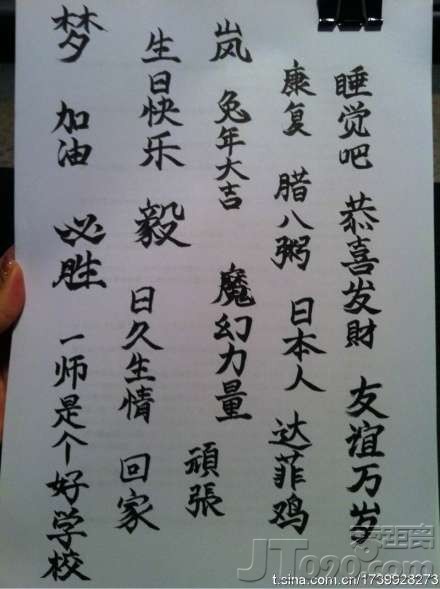 睡觉吧 恭喜发財 友谊万岁
康复 腊八粥 日本人 达菲鸡
岚 兔年大吉 魔幻力量 頑張
生日快乐 毅 日久生情 回家
梦 加油 必胜 一师是个好学校
JT090.com
t.sina.com.cn/1739928273